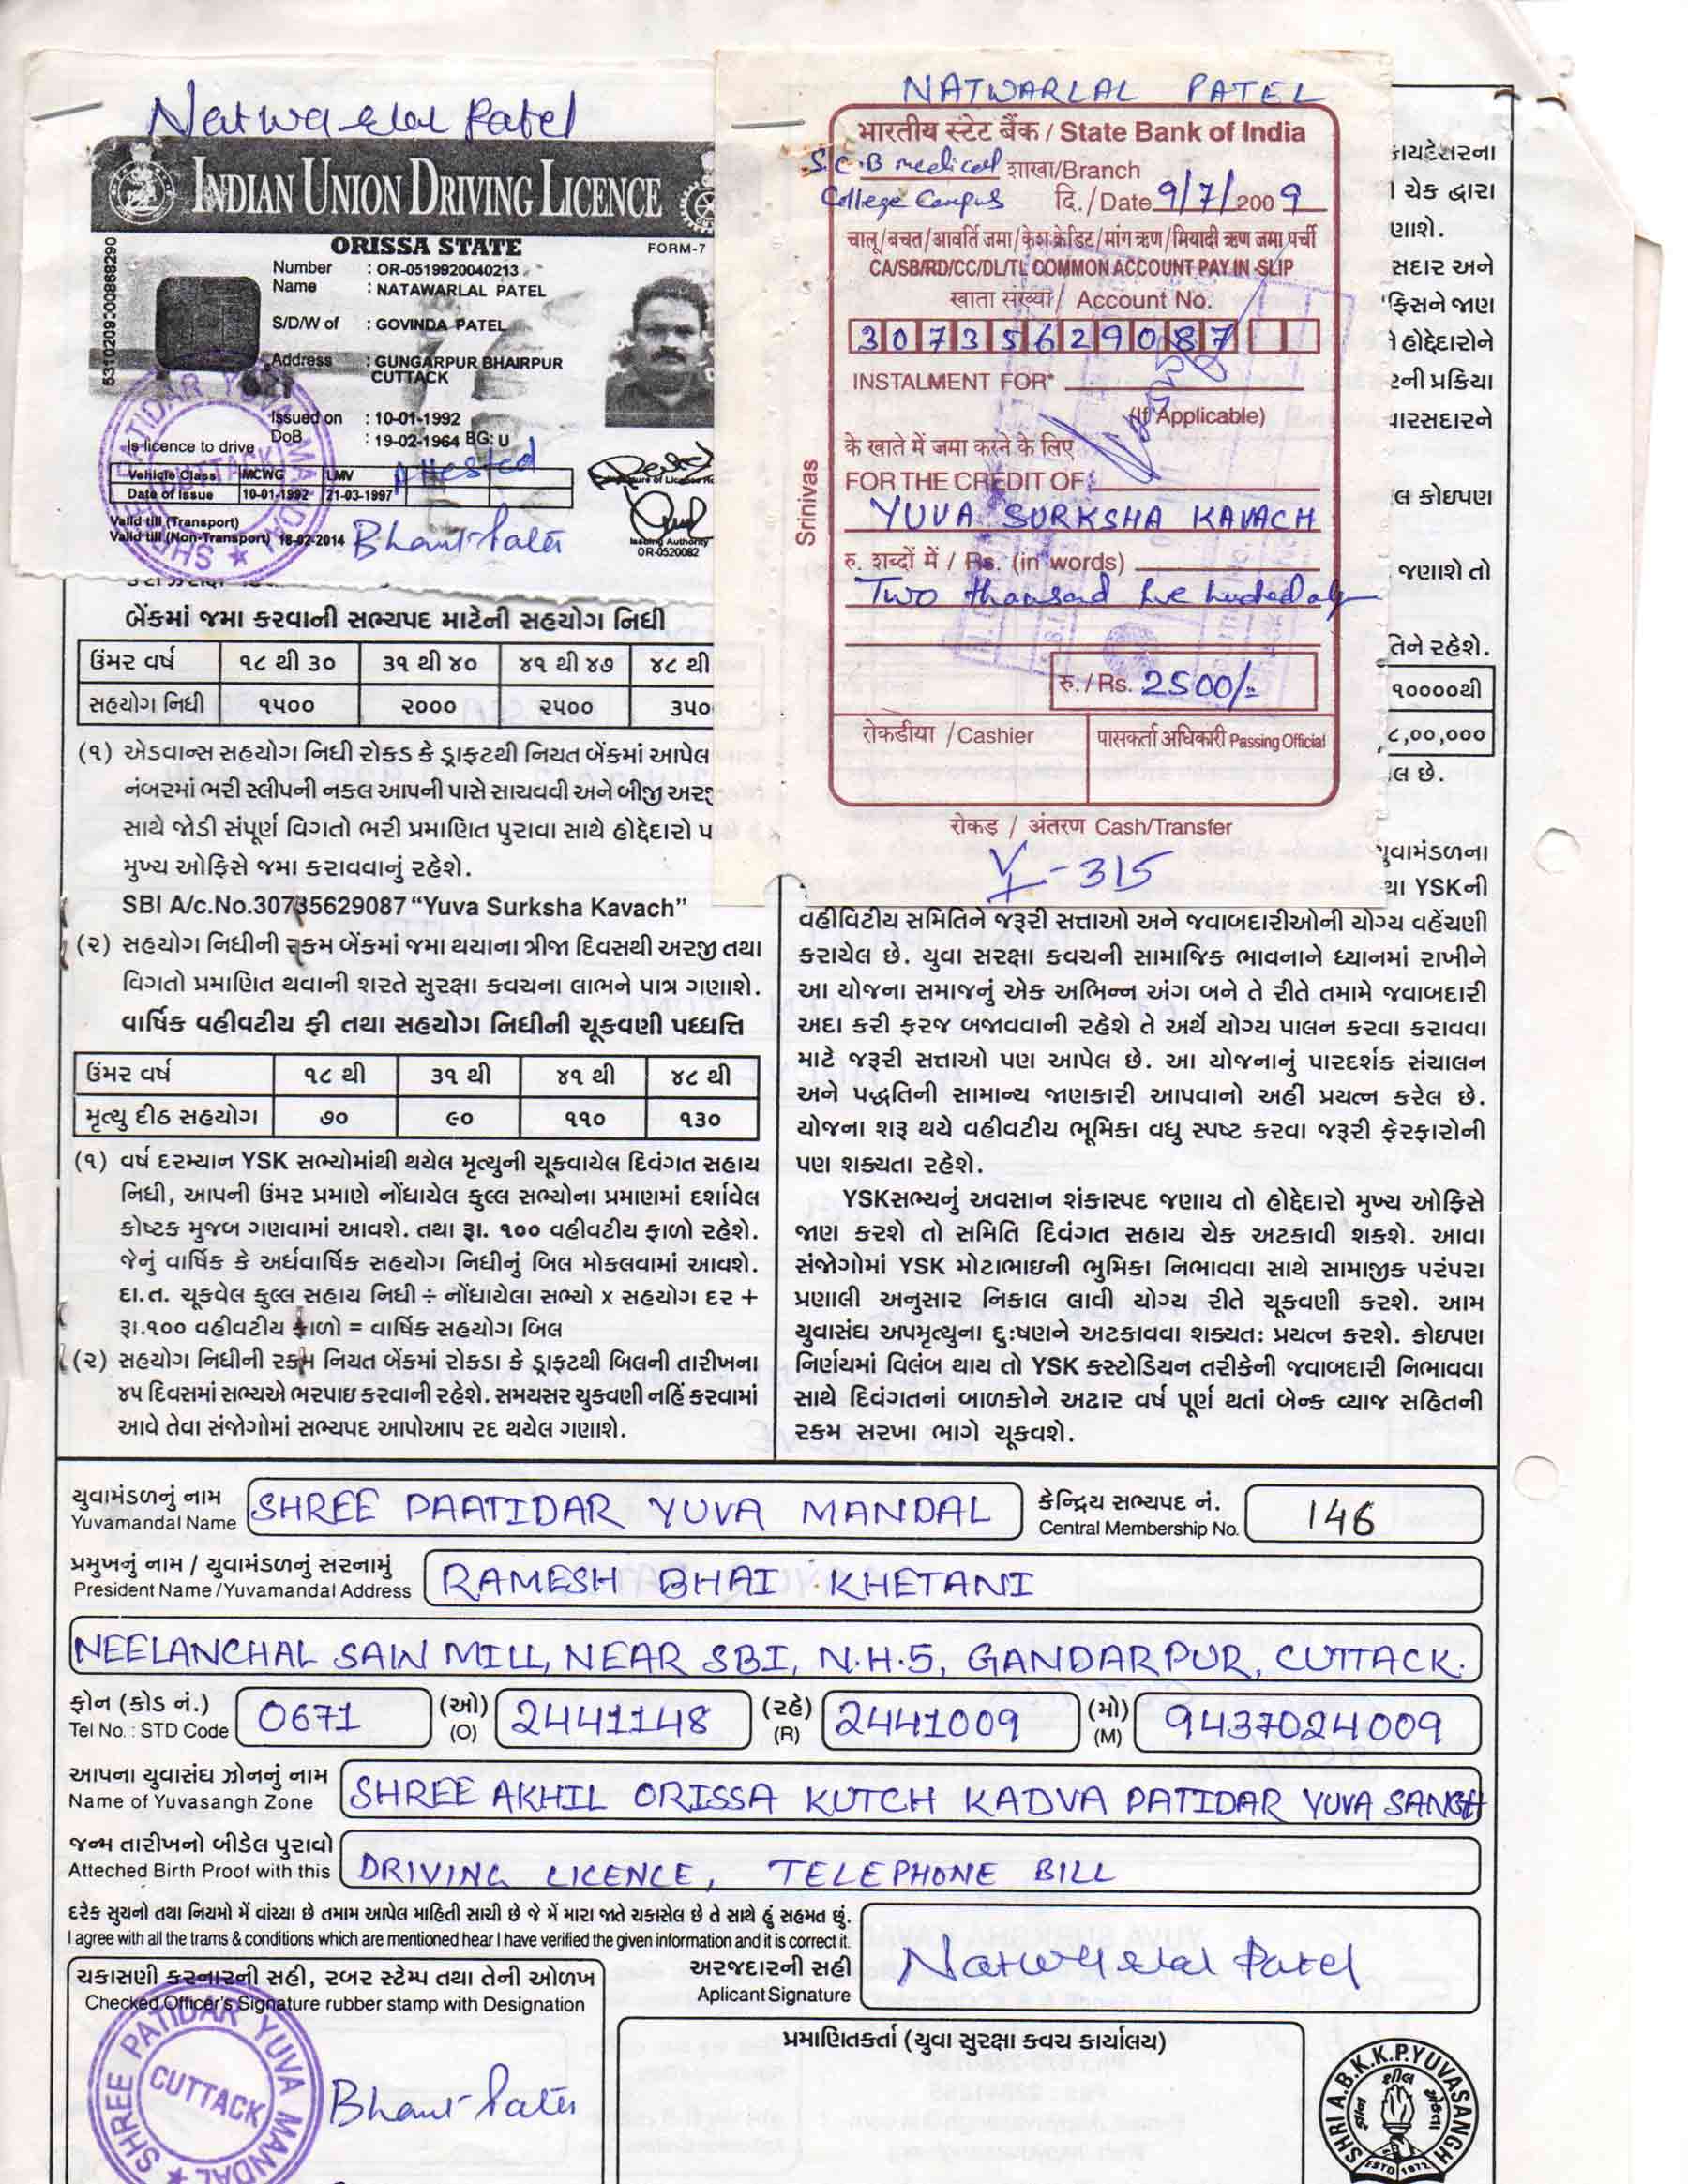 Natwarlal Patel
INDIAN UNION DRIVING LICENCE
ORISSA STATE
FORM-7
Number : OR-0519920040213
Name : NATAWARLAL PATEL
S/D/W of : GOVINDA PATEL
Address : GUNGARPUR BHAIRPUR
CUTTACK
Issued on : 10-01-1992
DoB : 19-02-1964 BG: U
Is licence to drive
Attested
Vehicle Class MCWG LMV
Date of Issue 10-01-1992 21-03-1997
Valid till (Transport)
Valid till (Non-Transport) 18-02-2014
Issuing Authority
OR-0520082
NATWARLAL PATEL
भारतीय स्टेट बैंक / State Bank of India
S.C.B medical शाखा/Branch
College Campus दि./Date 9/7/2009
चालू/बचत/आवर्ति जमा/केश क्रेडिट/मांग ऋण/मियादी ऋण जमा पर्ची
CA/SB/RD/CC/DL/TL COMMON ACCOUNT PAY IN-SLIP
खाता संख्या/ Account No.
30735629087
INSTALMENT FOR*
(If Applicable)
के खाते में जमा करने के लिए
FOR THE CREDIT OF:
YUVA SURKSHA KAVACH
रु. शब्दों में / Rs. (in words)
Two thousand five hundred only
रु./Rs. 2500/-
रोकडीया /Cashier पासकर्ता अधिकारी Passing Official
रोकड़ / अंतरण Cash/Transfer
Srinivas
કાયદેસરના
ચેક દ્વારા
ણાશે.
સદાર અને
ફિસને જાણ
હોદ્દેદારોને
રની પ્રક્રિયા
વારસદારને
લ કોઇપણ
જણાશે તો
તિને રહેશે.
૧૦૦૦૦થી
૮,૦૦,૦૦૦
લ છે.
બેંકમાં જમા કરવાની સભ્યપદ માટેની સહયોગ નિધી
ઉંમર વર્ષ ૧૮ થી ૩૦ ૩૧ થી ૪૦ ૪૧ થી ૪૭ ૪૮ થી
સહયોગ નિધી ૧૫૦૦ ૨૦૦૦ ૨૫૦૦ ૩૫૦
(૧) એડવાન્સ સહયોગ નિધી રોકડ કે ડ્રાફટથી નિયત બેંકમાં આપેલ
નંબરમાં ભરી સ્લીપની નકલ આપની પાસે સાચવવી અને બીજી
સાથે જોડી સંપૂર્ણ વિગતો ભરી પ્રમાણિત પુરાવા સાથે હોદ્દેદારો
મુખ્ય ઓફિસે જમા કરાવવાનું રહેશે.
SBI A/c.No.30735629087 “Yuva Surksha Kavach”
(૨) સહયોગ નિધીની રકમ બેંકમાં જમા થયાના ત્રીજા દિવસથી અરજી તથા
વિગતો પ્રમાણિત થવાની શરતે સુરક્ષા કવચના લાભને પાત્ર ગણાશે.
વાર્ષિક વહીવટીય ફી તથા સહયોગ નિધીની ચૂકવણી પધ્ધતિ
ઉંમર વર્ષ ૧૮ થી ૩૧ થી ૪૧ થી ૪૮ થી
મૃત્યુ દીઠ સહયોગ ૭૦ ૯૦ ૧૧૦ ૧૩૦
(૧) વર્ષ દરમ્યાન YSK સભ્યોમાંથી થયેલ મૃત્યુની ચૂકવાયેલ દિવંગત સહાય
નિધી, આપની ઉંમર પ્રમાણે નોંધાયેલ કુલ્લ સભ્યોના પ્રમાણમાં દર્શાવેલ
કોષ્ટક મુજબ ગણવામાં આવશે. તથા રૂા. ૧૦૦ વહીવટીય ફાળો રહેશે.
જેનું વાર્ષિક કે અર્ધવાર્ષિક સહયોગ નિધીનું બિલ મોકલવામાં આવશે.
દા.ત. ચૂકવેલ કુલ્લ સહાય નિધી ÷ નોંધાયેલા સભ્યો x સહયોગ દર +
રૂા.૧૦૦ વહીવટીય ફાળો = વાર્ષિક સહયોગ બિલ
(૨) સહયોગ નિધીની રકમ નિયત બેંકમાં રોકડા કે ડ્રાફટથી બિલની તારીખના
૪૫ દિવસમાં સભ્યએ ભરપાઇ કરવાની રહેશે. સમયસર ચુકવણી નહિં કરવામાં
આવે તેવા સંજોગોમાં સભ્યપદ આપોઆપ રદ થયેલ ગણાશે.
યુવામંડળના
થા YSKની
વહીવિટીય સમિતિને જરૂરી સત્તાઓ અને જવાબદારીઓની યોગ્ય વહેંચણી
કરાયેલ છે. યુવા સરક્ષા કવચની સામાજિક ભાવનાને ધ્યાનમાં રાખીને
આ યોજના સમાજનું એક અભિન્ન અંગ બને તે રીતે તમામે જવાબદારી
અદા કરી ફરજ બજાવવાની રહેશે તે અર્થે યોગ્ય પાલન કરવા કરાવવા
માટે જરૂરી સત્તાઓ પણ આપેલ છે. આ યોજનાનું પારદર્શક સંચાલન
અને પદ્ધતિની સામાન્ય જાણકારી આપવાનો અહીં પ્રયત્ન કરેલ છે.
યોજના શરૂ થયે વહીવટીય ભૂમિકા વધુ સ્પષ્ટ કરવા જરૂરી ફેરફારોની
પણ શક્યતા રહેશે.
YSKસભ્યનું અવસાન શંકાસ્પદ જણાય તો હોદ્દેદારો મુખ્ય ઓફિસે
જાણ કરશે તો સમિતિ દિવંગત સહાય ચેક અટકાવી શકશે. આવા
સંજોગોમાં YSK મોટાભાઇની ભુમિકા નિભાવવા સાથે સામાજીક પરંપરા
પ્રણાલી અનુસાર નિકાલ લાવી યોગ્ય રીતે ચૂકવણી કરશે. આમ
યુવાસંઘ અપમૃત્યુના દુઃષણને અટકાવવા શક્યતઃ પ્રયત્ન કરશે. કોઇપણ
નિર્ણયમાં વિલંબ થાય તો YSK કસ્ટોડિયન તરીકેની જવાબદારી નિભાવવા
સાથે દિવંગતનાં બાળકોને અઢાર વર્ષ પૂર્ણ થતાં બેન્ક વ્યાજ સહિતની
રકમ સરખા ભાગે ચૂકવશે.
યુવામંડળનું નામ SHREE PAATIDAR YUVA MANDAL કેન્દ્રિય સભ્યપદ નં. 146
Yuvamandal Name Central Membership No.
પ્રમુખનું નામ / યુવામંડળનું સરનામું RAMESH BHAI KHETANI
President Name /Yuvamandal Address
NEELANCHAL SAW MILL, NEAR SBI, N.H.5, GANDARPUR, CUTTACK.
ફોન (કોડ નં.) 0671 (ઓ) 2441148 (રહે) 2441009 (મો) 9437024009
Tel No. : STD Code (O) (R) (M)
આપના યુવાસંઘ ઝોનનું નામ SHREE AKHIL ORISSA KUTCH KADVA PATIDAR YUVA SANGH
Name of Yuvasangh Zone
જન્મ તારીખનો બીડેલ પુરાવો DRIVING LICENCE, TELEPHONE BILL
Atteched Birth Proof with this
દરેક સુચનો તથા નિયમો મેં વાંચ્યા છે તમામ આપેલ માહિતી સાચી છે જે મેં મારા જાતે ચકાસેલ છે તે સાથે હું સહમત છું.
I agree with all the trams & conditions which are mentioned hear I have verified the given information and it is correct it.
અરજદારની સહી Natwarlal Patel
Aplicant Signature
ચકાસણી કરનારની સહી, રબર સ્ટેમ્પ તથા તેની ઓળખ
Checked Officer's Signature rubber stamp with Designation
SHREE PATIDAR YUVA MANDAL
CUTTACK
પ્રમાણિતકર્તા (યુવા સુરક્ષા કવચ કાર્યાલય)
SHRI A.B.K.K.P.YUVASANGH
ESTD 1972